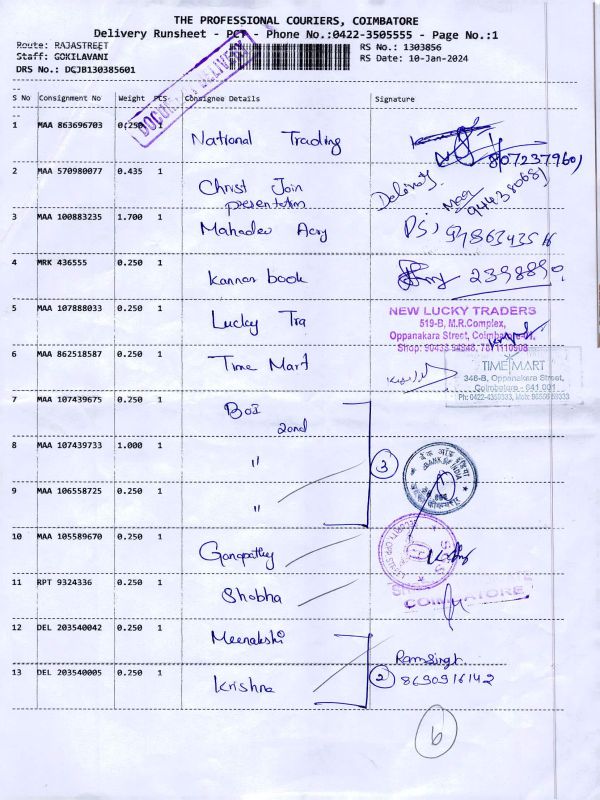 THE PROFESSIONAL COURIERS, COIMBATORE
Delivery Runsheet - PCT - Phone No.:0422-3505555 - Page No.:1
Route: RAJASTREET
Staff: GOKILAVANI
DRS No.: DCJB130385601
RS No.: 1303856
RS Date: 10-Jan-2024
S No Consignment No Weight PCS Consignee Details Signature
1 MAA 863696703 0.250 1 National Trading
2 MAA 570980077 0.435 1 Christ Join
presentation
3 MAA 100883235 1.700 1 Mahadev Acry
4 MRK 436555 0.250 1 Kannan book
2398890
5 MAA 107888033 0.250 1 Lucky Tra
NEW LUCKY TRADERS
519-B, M.R.Complex,
Oppanakara Street, Coimbatore
6 MAA 862518587 0.250 1 Time Mart
TIME MART
346-B, Oppanakara Street,
Coimbatore - 641 001
7 MAA 107439675 0.250 1 BOI
2and
8 MAA 107439733 1.000 1 "
3
BANK OF INDIA
बैंक ऑफ इंडिया
9 MAA 106558725 0.250 1 "
10 MAA 105589670 0.250 1 Ganapathy
11 RPT 9324336 0.250 1 Shobha
COIMBATORE
12 DEL 203540042 0.250 1 Meenakshi
Ramsingh
13 DEL 203540005 0.250 1 Krishna
2 8690916142
6